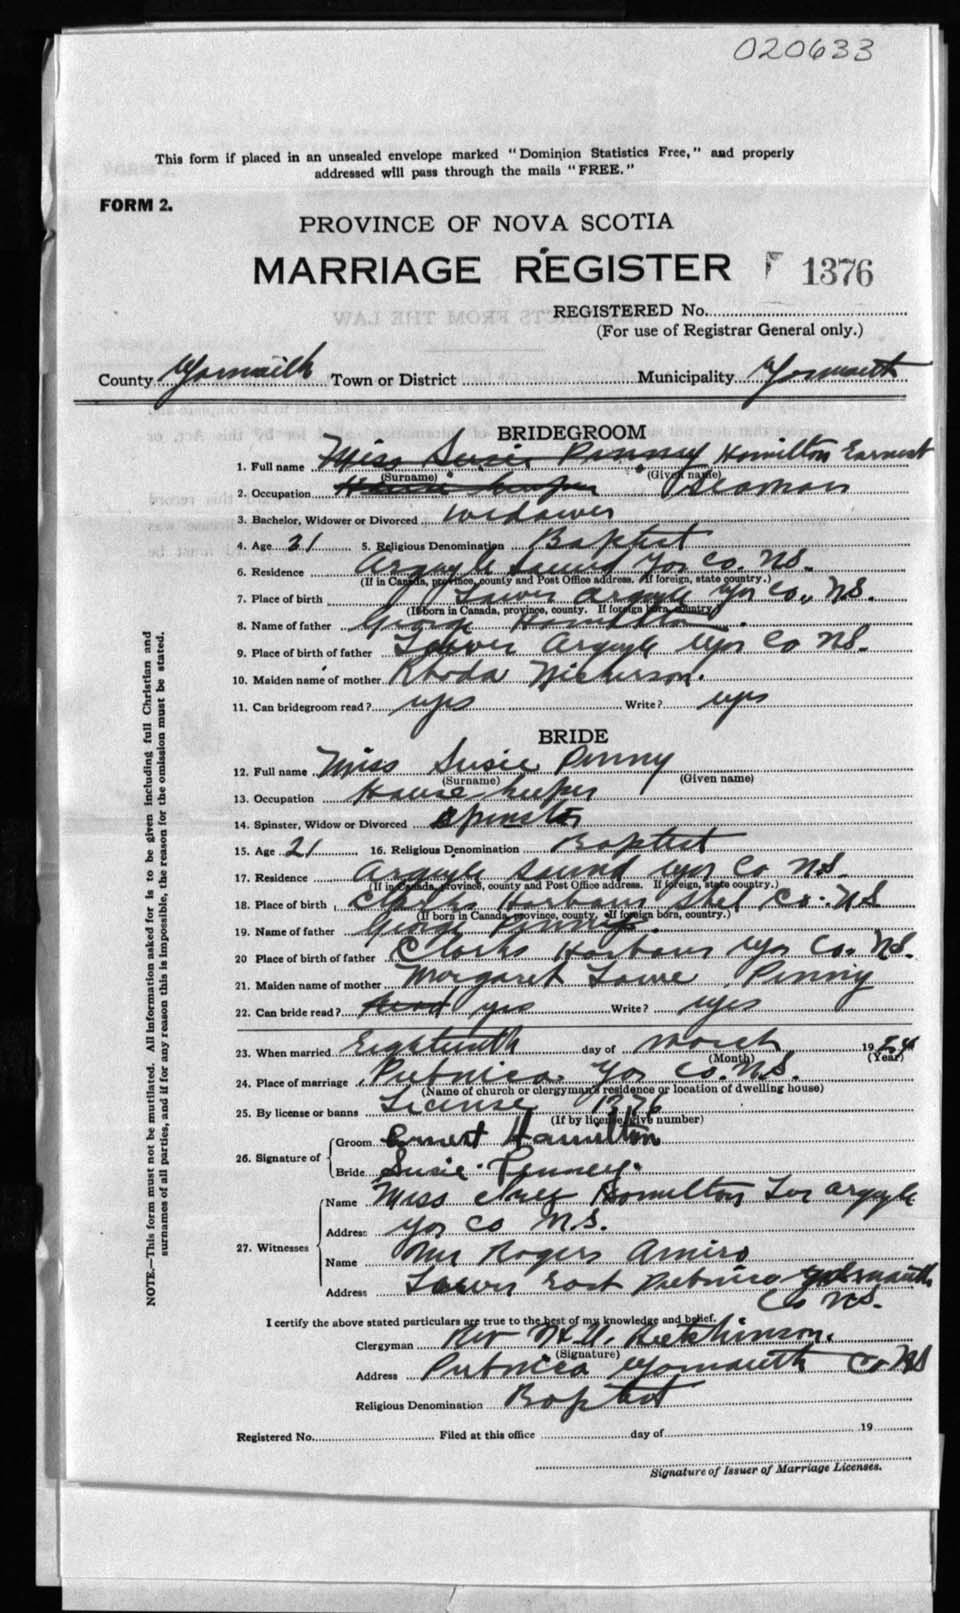 020633
This form if placed in an unsealed envelope marked "Dominion Statistics Free," and properly
addressed will pass through the mails "FREE."
FORM 2.
PROVINCE OF NOVA SCOTIA
MARRIAGE REGISTER F 1376
REGISTERED No.
(For use of Registrar General only.)
County Yarmouth Town or District Municipality Yarmouth
BRIDEGROOM
1. Full name Miss Susie Penny Hamilton Earnest
(Surname) (Given name)
2. Occupation House keeper Seaman
3. Bachelor, Widower or Divorced widower
4. Age 31 5. Religious Denomination Baptist
6. Residence Argyle Sound Yar Co. NS.
(If in Canada, province, county and Post Office address. If foreign, state country.)
7. Place of birth Lower Argyle Yar Co., NS.
(If born in Canada, province, county. If foreign born, country.)
8. Name of father George Hamilton.
9. Place of birth of father Lower Argyle Yar Co NS.
10. Maiden name of mother Rhoda Nickerson.
11. Can bridegroom read? yes Write? yes
BRIDE
12. Full name Miss Susie Penny
(Surname) (Given name)
13. Occupation House keeper
14. Spinster, Widow or Divorced Spinster
15. Age 21 16. Religious Denomination Baptist
17. Residence Argyle Sound Yar Co NS.
(If in Canada, province, county and Post Office address. If foreign, state country.)
18. Place of birth Clarks Harbour Shel Co. NS
(If born in Canada, province, county. If foreign born, country.)
19. Name of father Penny.
20 Place of birth of father Clarks Harbour Yar Co. NS.
21. Maiden name of mother Margaret Lowe Penny
22. Can bride read? Read yes Write? yes
23. When married Eighteenth day of March 1924
(Month) (Year)
24. Place of marriage Pubnico Yar Co. N.S.
(Name of church or clergyman's residence or location of dwelling house)
25. By license or banns License 1376
(If by license, give number)
26. Signature of Groom Ernest Hamilton
Bride Susie Penney.
27. Witnesses Name Miss Hamilton Lor Argyle
Address Yar Co N.S.
Name Mrs Rogers Amiro
Address Lower East Pubnico Yarmouth
Co NS.
I certify the above stated particulars are true to the best of my knowledge and belief.
Clergyman Rev Hutchinson.
(Signature)
Address Pubnico Yarmouth Co NS
Religious Denomination Baptist
Registered No. Filed at this office day of 19
Signature of Issuer of Marriage Licenses.
NOTE.—This form must not be mutilated. All information asked for is to be given including full Christian and
surnames of all parties, and if for any reason this is impossible, the reason for the omission must be stated.